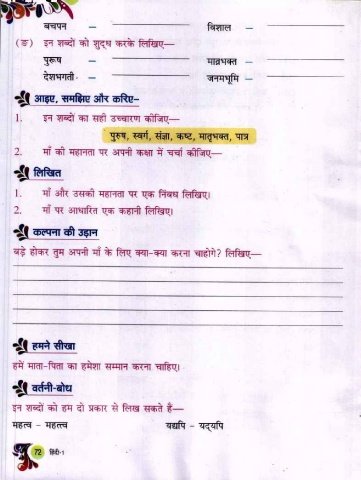 बचपन – विशाल –
(ङ) इन शब्दों को शुद्ध करके लिखिए—
पुरूष – मात्रभक्त –
देशभगती – जनमभूमि –
आइए, समझिए और करिए–
1. इन शब्दों का सही उच्चारण कीजिए—
पुरुष, स्वर्ग, संज्ञा, कष्ट, मातृभक्त, पात्र
2. माँ की महानता पर अपनी कक्षा में चर्चा कीजिए—
लिखित
1. माँ और उसकी महानता पर एक निबंध लिखिए।
2. माँ पर आधारित एक कहानी लिखिए।
कल्पना की उड़ान
बड़े होकर तुम अपनी माँ के लिए क्या-क्या करना चाहोगे? लिखिए—
हमने सीखा
हमें माता-पिता का हमेशा सम्मान करना चाहिए।
वर्तनी-बोध
इन शब्दों को हम दो प्रकार से लिख सकते हैं—
महत्व – महत्त्व यद्यपि – यद्‌यपि
72 हिंदी-1